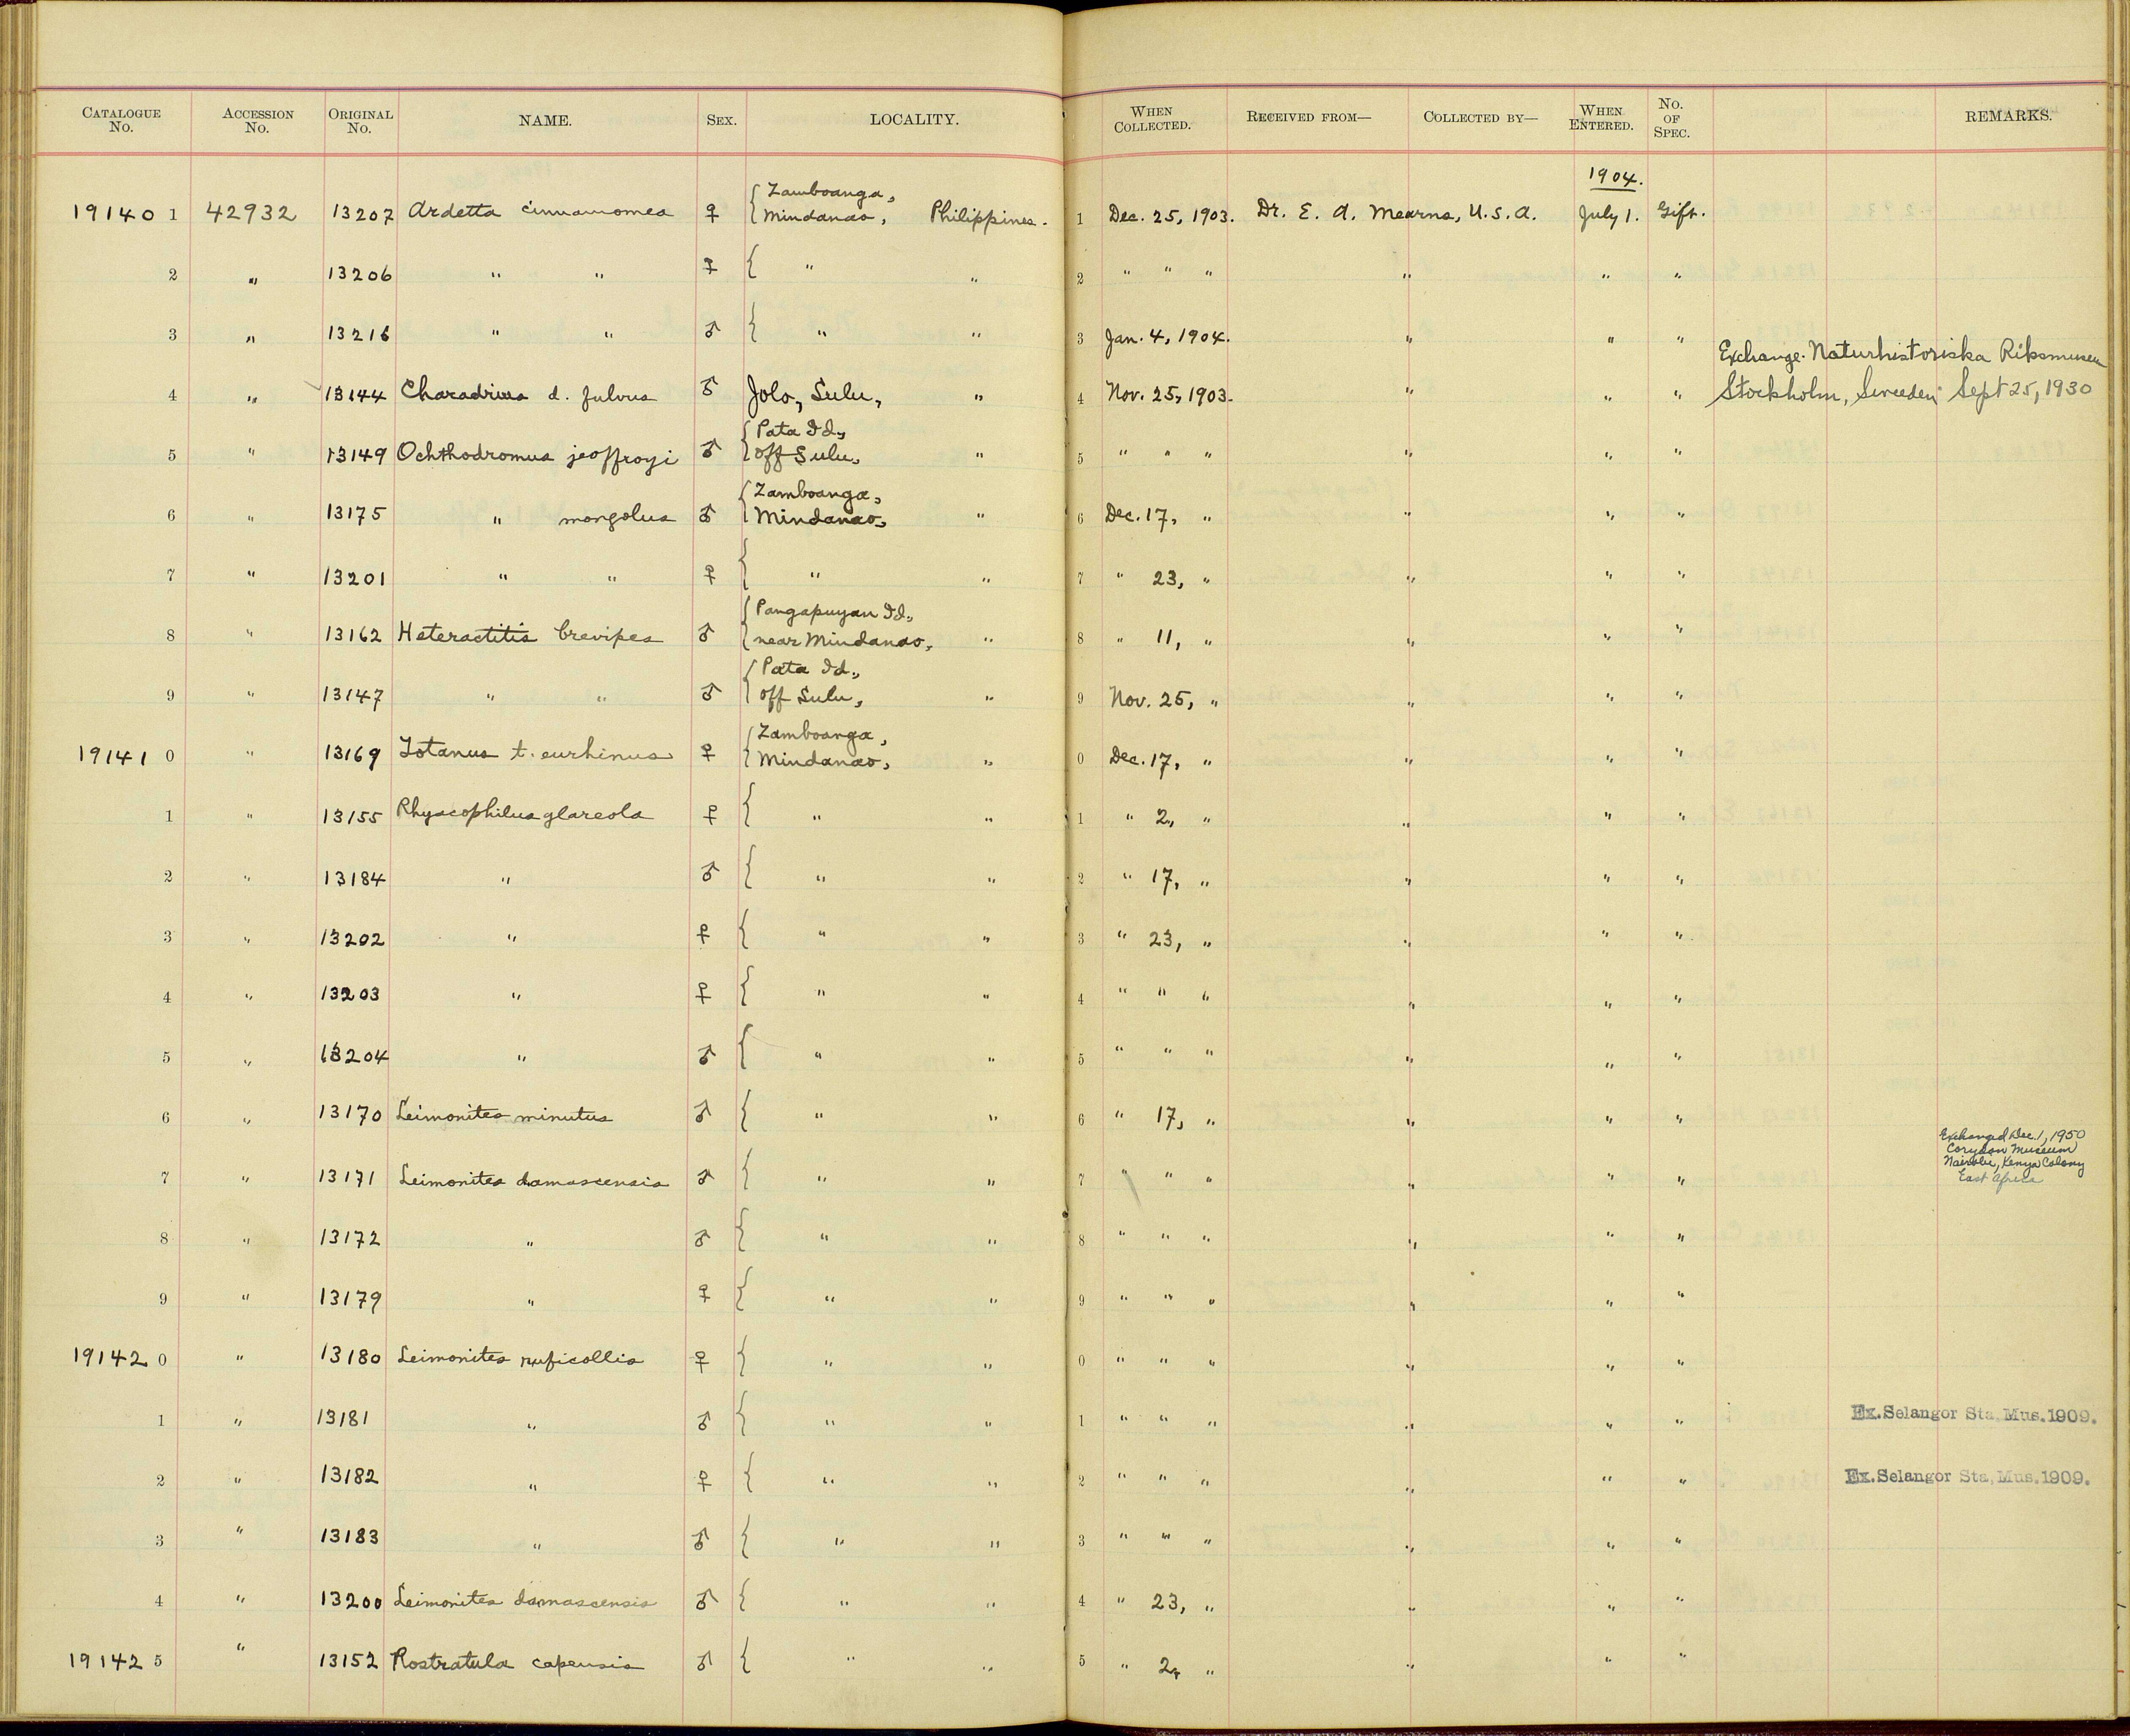 CATALOGUE No. ACCESSION No. ORIGINAL No. NAME. SEX. LOCALITY. WHEN COLLECTED. RECEIVED FROM— COLLECTED BY— WHEN ENTERED. No. OF SPEC. REMARKS.
1904.
19140 1 42932 13207 Ardetta cinnamomea ♀ { Zamboanga, Mindanao, Philippines. 1 Dec. 25, 1903. Dr. E. A. Mearns, U.S.A. July 1. Gift.
2 " 13206 " " ♀ { " " 2 " " " " " "
3 " 13216 " " ♂ { " " 3 Jan. 4, 1904. " " "
4 " 13144 Charadrius d. fulvus ♂ Jolo, Sulu, " 4 Nov. 25, 1903. " " " Exchange. Naturhistoriska Riksmuseu Stockholm, Sweeden Sept 25, 1930
5 " 13149 Ochthodromus jeoffroyi ♂ { Pata Id., off Sulu, " 5 " " " " " "
6 " 13175 " mongolus ♂ { Zamboanga, Mindanao, " 6 Dec. 17, " " " "
7 " 13201 " " ♀ { " " 7 " 23, " " " "
8 " 13162 Heteractitis brevipes ♂ { Pangapuyan Id., near Mindanao, " 8 " 11, " " " "
9 " 13147 " " ♂ { Pata Id., off Sulu, " 9 Nov. 25, " " " "
19141 0 " 13169 Totanus t. eurhinus ♀ { Zamboanga, Mindanao, " 0 Dec. 17, " " " "
1 " 13155 Rhyacophilus glareola ♀ { " " 1 " 2, " " " "
2 " 13184 " ♂ { " " 2 " 17, " " " "
3 " 13202 " ♀ { " " 3 " 23, " " " "
4 " 13203 " ♀ { " " 4 " " " " " "
5 " 13204 " ♂ { " " 5 " " " " " "
6 " 13170 Leimonites minutus ♂ { " " 6 " 17, " " " "
7 " 13171 Leimonites damascensis ♂ { " " 7 " " " " " " Exchanged Dec. 1, 1950 Corydon Museum Nairobi, Kenya Colony East Africa
8 " 13172 " ♂ { " " 8 " " " " " "
9 " 13179 " ♀ { " " 9 " " " " " "
19142 0 " 13180 Leimonites ruficollis ♀ { " " 0 " " " " " "
1 " 13181 " ♂ { " " 1 " " " " " " Ex. Selangor Sta. Mus. 1909.
2 " 13182 " ♀ { " " 2 " " " " " " Ex. Selangor Sta. Mus. 1909.
3 " 13183 " ♂ { " " 3 " " " " " "
4 " 13200 Leimonites damascensis ♂ { " " 4 " 23, " " " "
19142 5 " 13152 Rostratula capensis ♂ { " " 5 " 2, " " " "